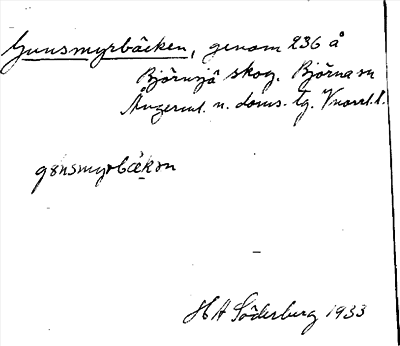 Gunsmyrbäcken, genom 236 å
Björnsjö skog. Björna sn
Ångerml. n. doms. tg. Vnorrl. l.
gɵnsmyrbäkən
H A Söderberg 1933